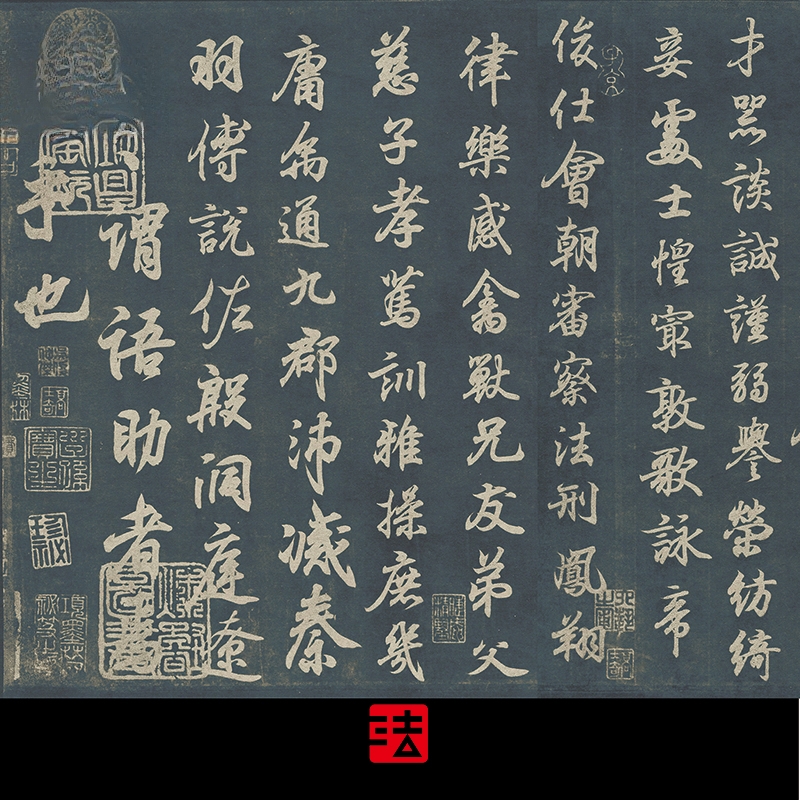 才器談誠謹弱譽榮紡綺
妾處士惶敦歌詠帝
俊仕會朝審察法刑鳳翔
律樂感禽獸兄友弟父
慈子孝篤訓雅操庶幾
庸禹通九郡沛滅秦
羽傅說佐殷洞庭遼
謂語助者焉
乎也
法